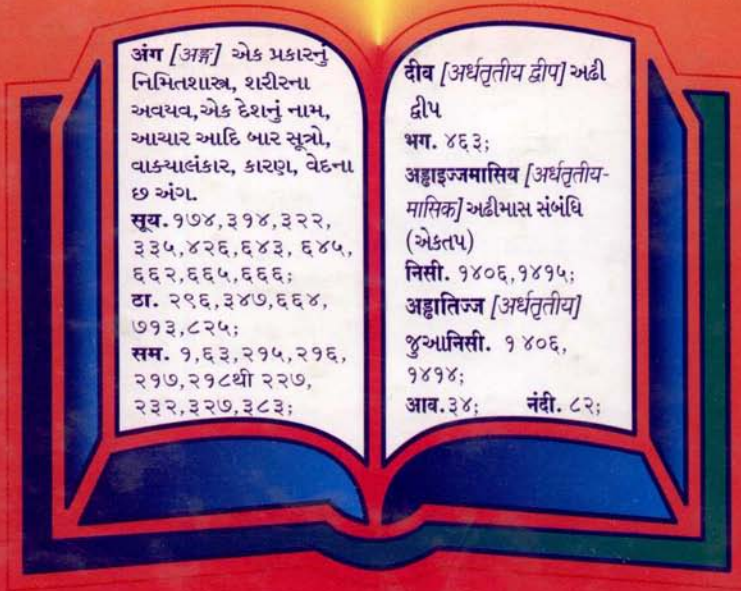 अंग [अङ्ग] એક પ્રકારનું
નિમિતશાસ્ત્ર, શરીરના
અવયવ,એક દેશનું નામ,
આચાર આદિ બાર સૂત્રો,
વાક્યાલંકાર, કારણ, વેદના
છ અંગ.
सूय.૧૭૪,૩૧૪,૩૨૨,
૩૩૫,૪૨૬,૬૪૩, ૬૪૫,
૬૬૨,૬૬૫,૬૬૬;
ठा. ૨૯૬,૩૪૭,૬૬૪,
૭૧૩,૮૨૫;
सम. ૧,૬૩,૨૧૫,૨૧૬,
૨૧૭,૨૧૮થી ૨૨૭,
૨૩૨,૩૨૭,૩૮૩;
दीव [अर्धतृतीय द्वीप] અઢી
દ્વીપ
भग. ૪૬૩;
अड्ढाइज्जमासिय [अर्धतृतीय-
मासिक] અઢીમાસ સંબંધિ
(એકતપ)
निसी. ૧૪૦૬,૧૪૧૫;
अड्ढातिज्ज [अर्धतृतीय]
જુઓनिसी. ૧૪૦૬,
૧૪૧૪;
आव.૩૪; नंदी. ૮૨;